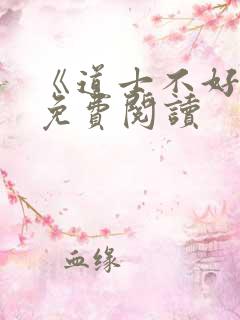 《道士不好
免費閱讀
血缘